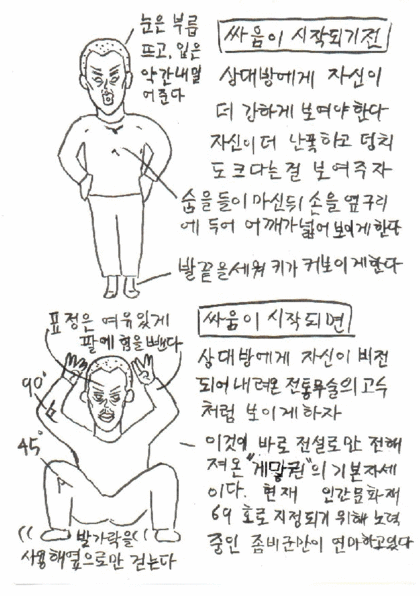 눈은 부릅
뜨고, 입은
약간 내밀
어준다
싸움이 시작되기전
상대방에게 자신이
더 강하게 보여야 한다
자신이 더 난폭하고 덩치
도 크다는걸 보여주자
숨을 들이 마신뒤 손을 옆구리
에 두어 어깨가 넓어 보이게 한다
발끝을 세워 키가 커보이게 한다
표정은 여유있게
팔에 힘을 뺀다
90°
45°
발가락을
사용해 옆으로만 걷는다
싸움이 시작되면
상대방에게 자신이 비전
되어 내려온 전통무술의 고수
처럼 보이게 하자
이것이 바로 전설로만 전해
져온 "게맣권"의 기본자세
이다. 현재 인간문화재
69호로 지정되기 위해 노력
중인 좀비군만이 연마하고있다